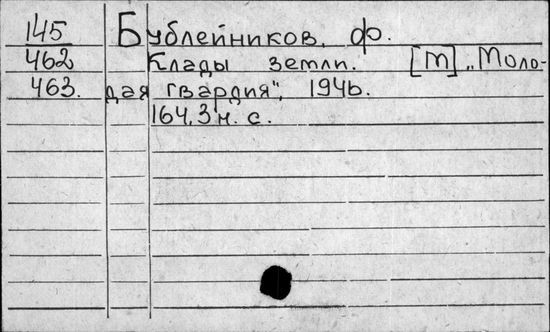 145 Бублейников, Ф.
462 Клады земли. [М] „Моло-
463. дая гвардия", 1946.
164,3 н. с.